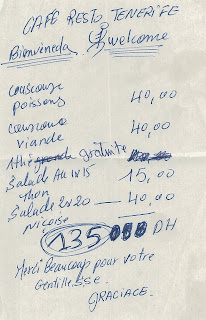 CAFÉ RESTO TENERIFE
Bienveneda welcome
couscous
poissons 40,00
couscous
viande 40,00
1 thé gratuite
Salade 1x15 15,00
thon
Salade 2x20 — 40,00
nicoise
135 DH
Merci Beaucoup pour votre
Gentillesse.
GRACIACE.